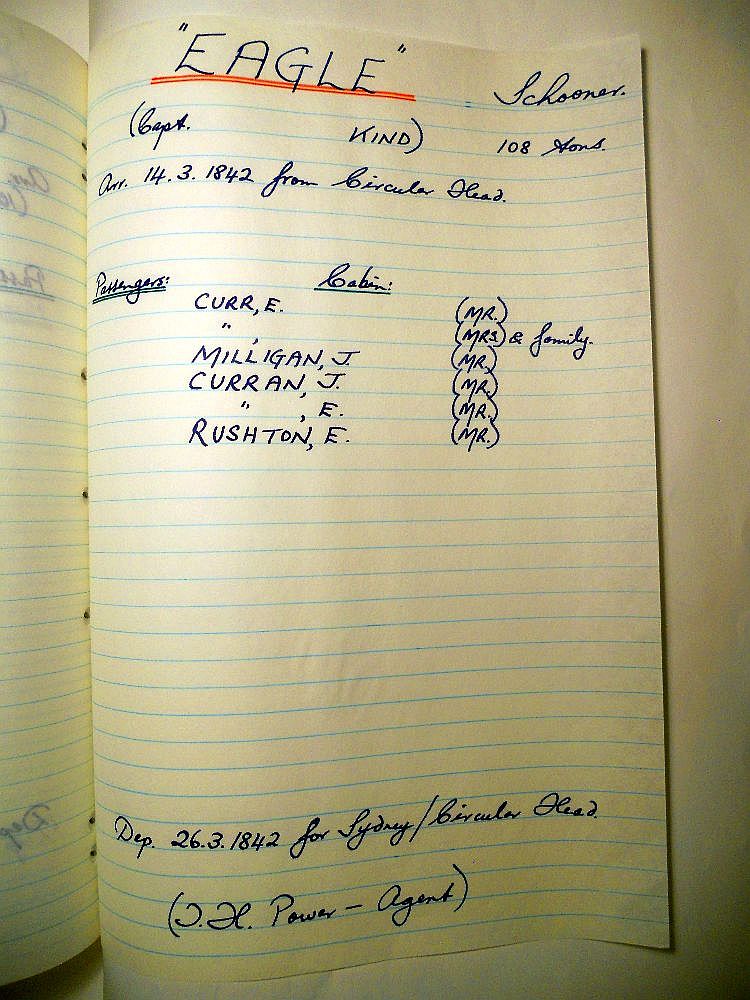 "EAGLE" Schooner.
(Capt. KIND) 108 tons.
Arr. 14.3.1842 from Circular Head.
Passengers: Cabin:
CURR, E. (MR.)
" , (MRS) & family.
MILLIGAN, J. (MR.)
CURRAN, J. (MR.)
" , E. (MR.)
RUSHTON, E. (MR.)
Dep. 26.3.1842 for Sydney/Circular Head.
(J.H. Power - Agent)